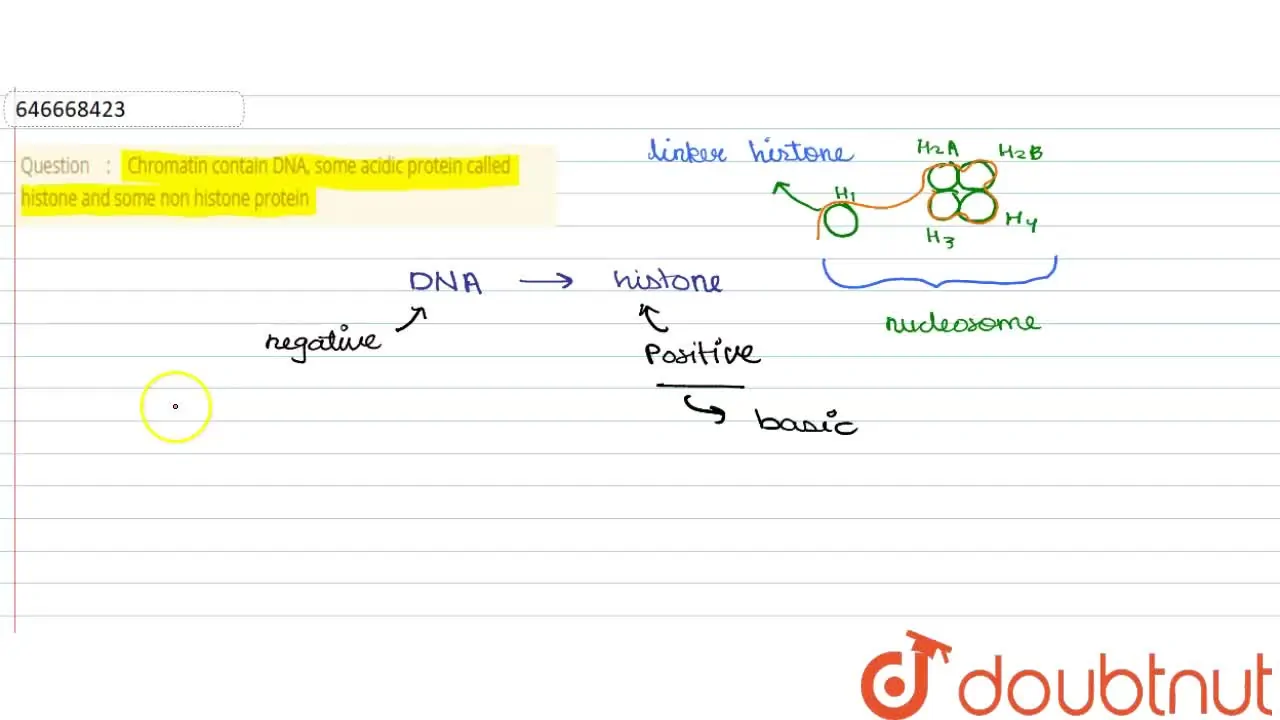 646668423
Question : Chromatin contain DNA, some acidic protein called
histone and some non histone protein
linker histone
H2A
H2B
H1
H3
H4
DNA → histone
nucleosome
negative
Positive
basic
doubtnut